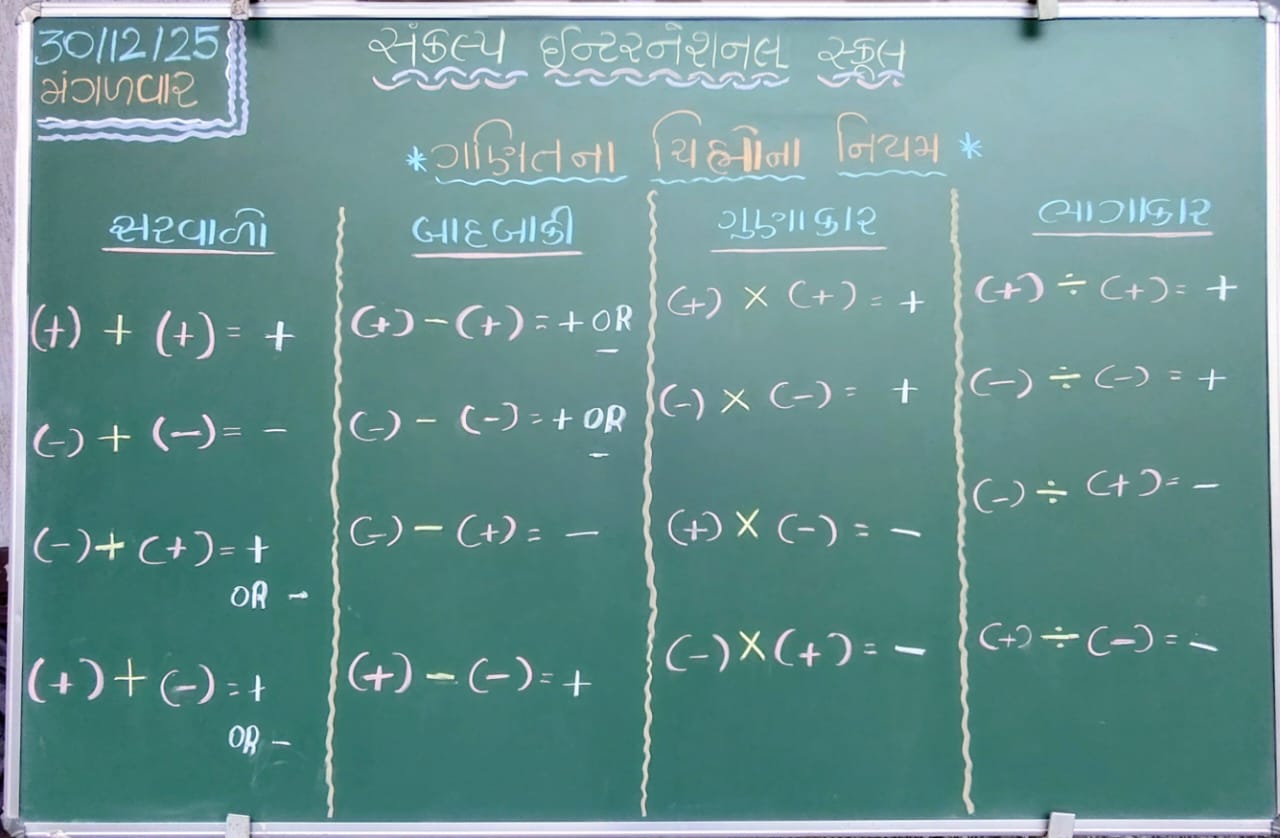 30/12/25
મંગળવાર
સંકલ્પ ઈન્ટરનેશનલ સ્કૂલ
*ગણિતના ચિહ્નોના નિયમ *
સરવાળો
(+) + (+) = +
(-) + (-) = -
(-) + (+) = +
OR -
(+) + (-) = +
OR -
બાદબાકી
(+) - (+) = + OR
-
(-) - (-) = + OR
-
(-) - (+) = -
(+) - (-) = +
ગુણાકાર
(+) × (+) = +
(-) × (-) = +
(+) × (-) = -
(-) × (+) = -
ભાગાકાર
(+) ÷ (+) = +
(-) ÷ (-) = +
(-) ÷ (+) = -
(+) ÷ (-) = -